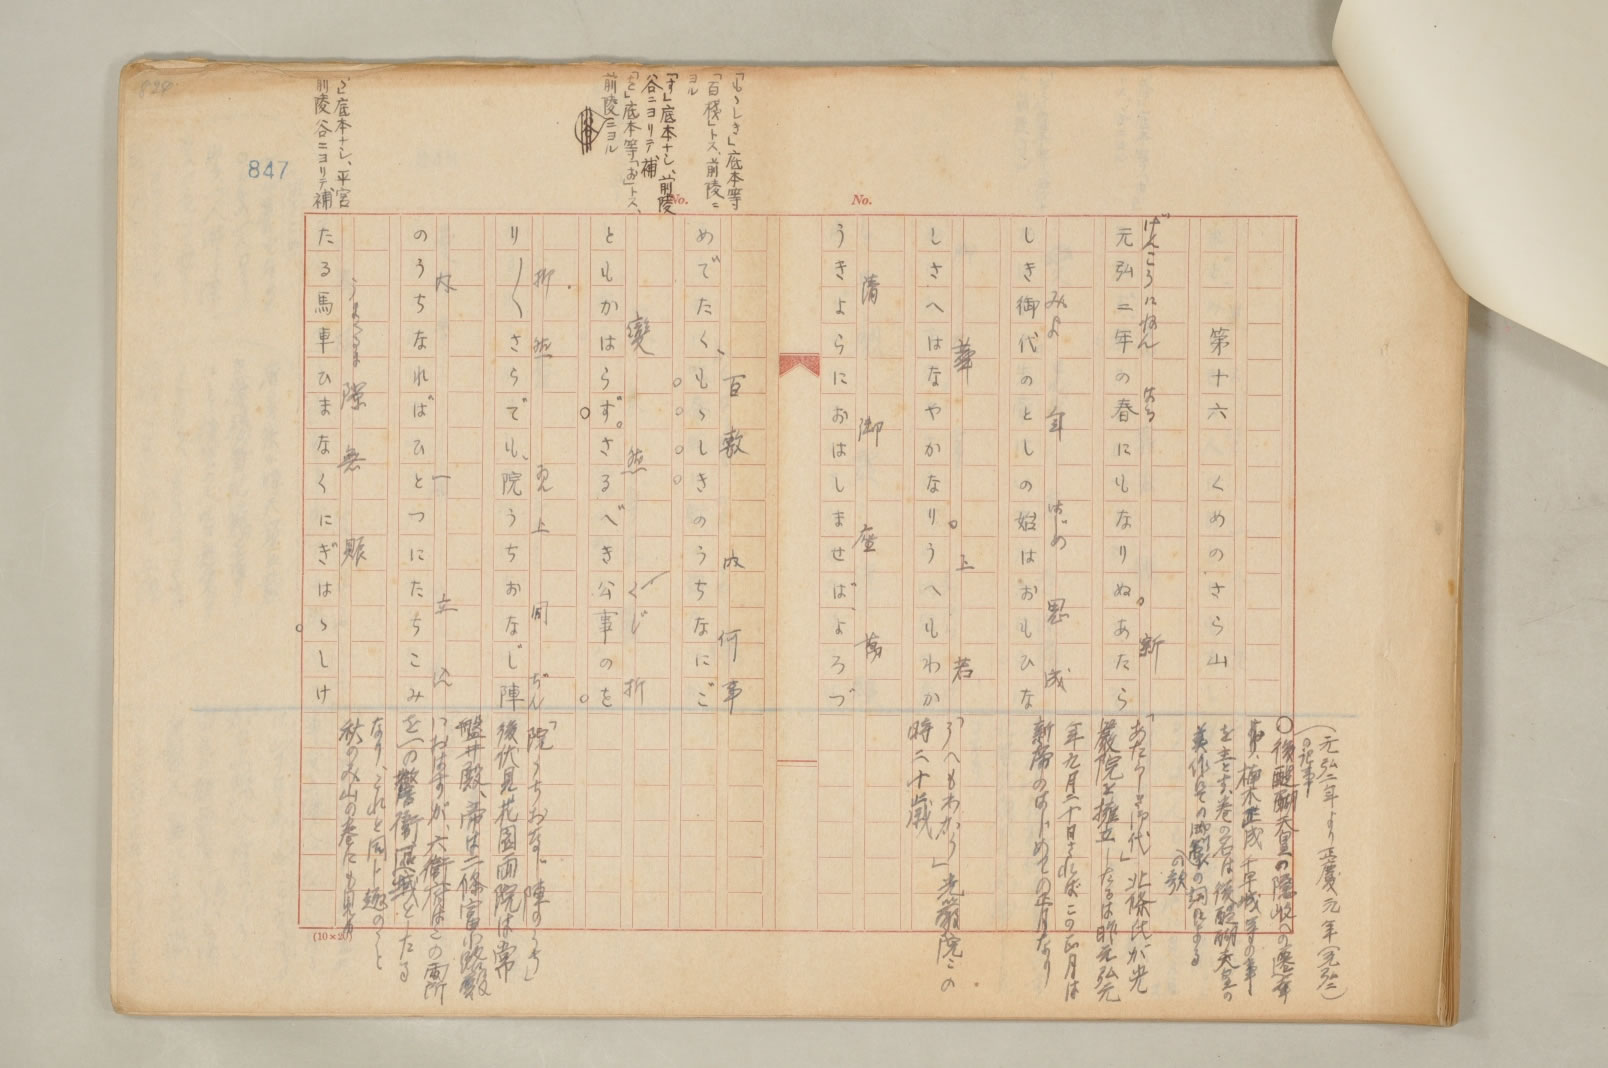 第十六 くめのさら山
げんこうにねん はる 新
元弘二年の春にもなりぬ。あたら
みよ 年 はじめ 思 成
しき御代のとしの始はおもひな
華 上 若
しさへはなやかなり。うへもわか
清 御座 萬
うきよらにおはしませば、よろづ
百敷 内 何事
めでたく、もゝしきのうちなにご
變 然 くじ 折
ともかはらず。さるべき公事のを
折 然 ゐん 上 同 ぢん
り〳〵さらでも、院うちおなじ陣
内 一 立込
のうちなればひとつにたちこみ
うまくるま 隙無 賑
たる馬車ひまなくにぎはゝしけ
「もゝしき」底本等
「百穐」トス、前陵ニ
ヨル
「す」底本ナシ、前陵
谷ニヨリテ補
「を」底本等「お」トス、
前陵ニヨル
底本ナシ、平宮
前陵谷ニヨリテ補
847
824
No.
No.
(元弘二年より正慶元年(元弘二)
の記事)
○後醍醐天皇の隠岐への遷幸
楠木正成 千早城 等の事
を主とす、巻の名は後醍醐天皇の
美作 の御製の詞による
の歌
「あたらしき御代」北條氏が光
厳院を擁立したるは昨元弘元
年九月二十日さればこの正月は
新帝のはじめての正月なり
「うへもわかう」光厳院この
時二十歳
「院うちおなじ陣のうち」
後伏見花園両院は常
盤井殿、帝は二條富小路殿
におはすが、六衛府はこの両所
を一の警衛区域としたる
なり、これと同じ趣のこと
秋のみ山の巻にも見ゆ
(10×20)